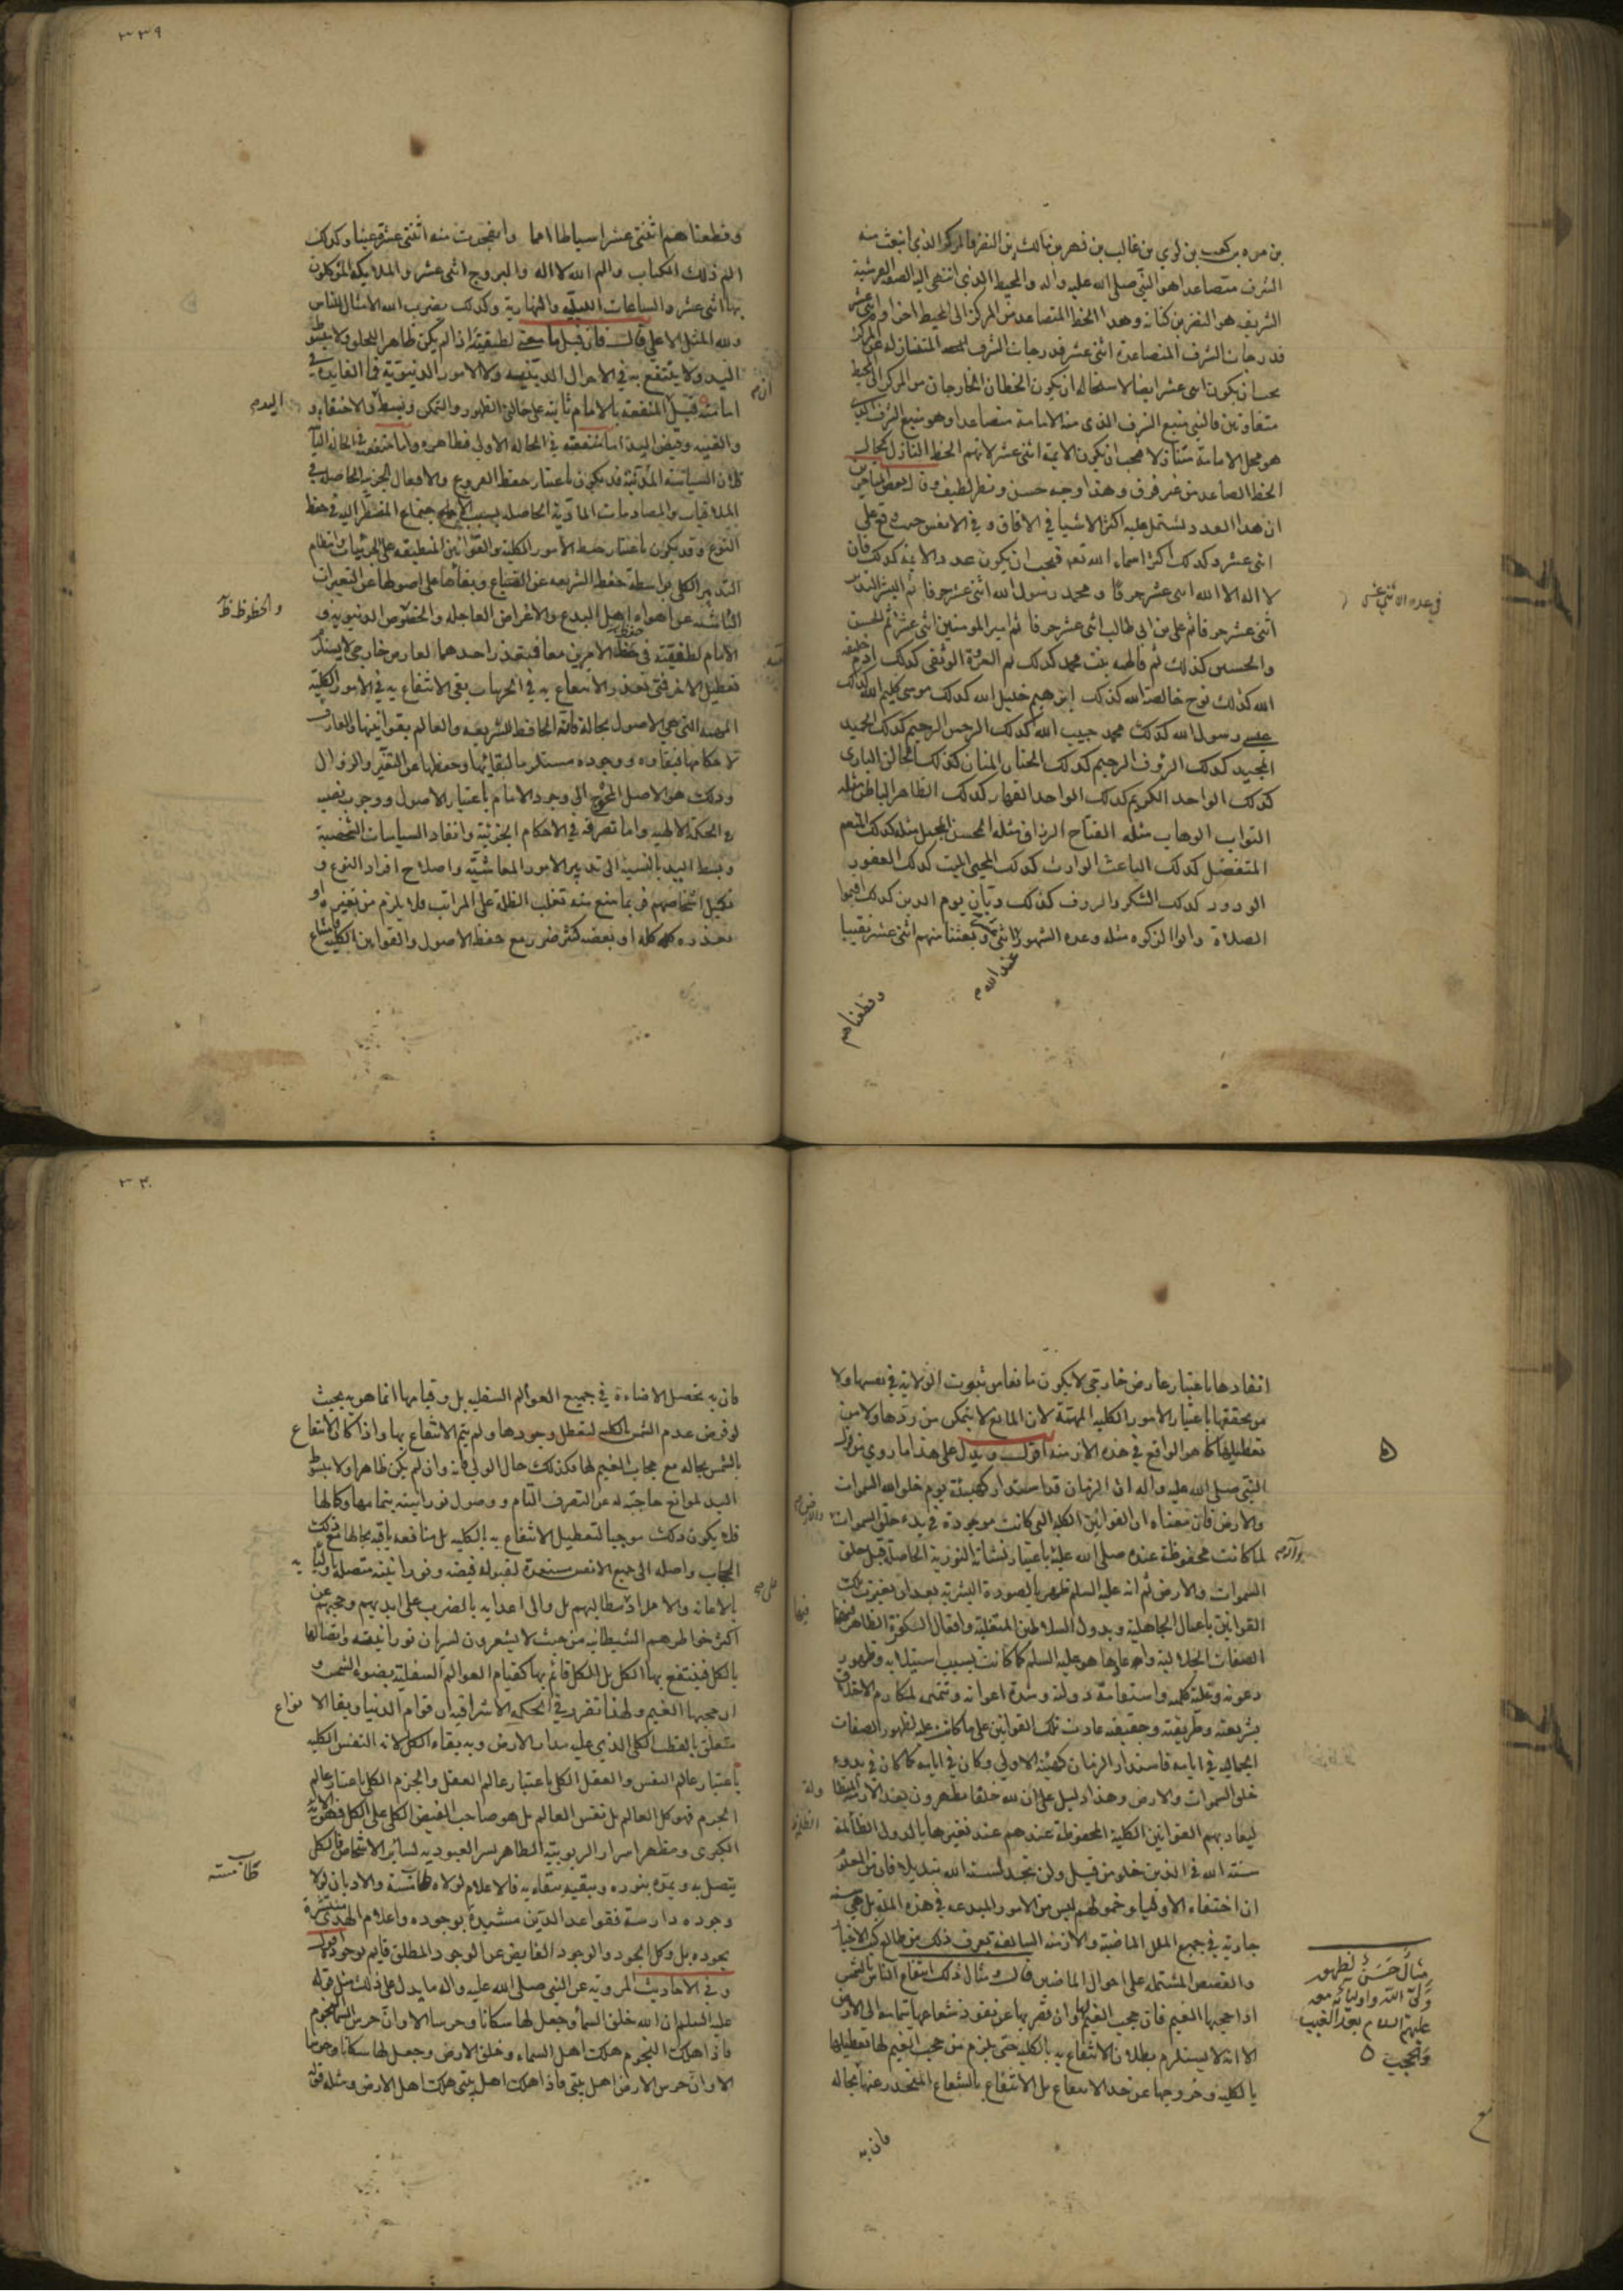 بن مره بن كعب بن لوي بن غالب بن فهر بن مالك بن النضر فالمركز الذي انبعث منه
الشرف متصاعدا هو النبي صلى الله عليه واله والمحيط الذي انتهى اليه الصفة القرشية
الشريف هو النضر بن كنانة وهذا الخط المتصاعد من المركز الى المحيط
فدرجات الشرف المتصاعدة اثنى عشر فدرجات الشرف
يجب ان يكون اثنى عشر ايضا لاستحالة ان يكون الخطان الخارجان من المركز الى المحيط
متفاوتين فالنبي منبع الشرف الذي منه الامامة متصاعدا وهو منبع الشرف الذي
هو محل الامامة متنازلا فيجب ان يكون الايمة اثنى عشر لانهم الخط النازل
الخط الصاعد من غير فرق وهذا وجه حسن ونظر لطيف وقال بعض المتاخرين
ان هذا العدد يشتمل عليه اكثر الاشيا في الافاق وفي الانفس حيث وقع على
اثنى عشر وكذلك اكثر اسماء الله تعه فيجب ان يكون عدد الايمة كذلك فان
لا اله الا الله اثنى عشر حرفا ومحمد رسول الله اثنى عشر حرفا ثم البشير النذير
اثنى عشر حرفا ثم علي بن ابي طالب اثنى عشر حرفا ثم امير المومنين اثنى عشر ثم الحسن
والحسين كذلك ثم فاطمه بنت محمد كذلك ثم العروة الوثقى كذلك ادم خليفه
الله كذلك نوح خالصة الله كذلك ابرهيم خليل الله كذلك موسى كليم الله كذلك
عيسى رسول الله كذلك محمد حبيب الله كذلك الرحمن الرحيم كذلك الحميد
المجيد كذلك الروف الرحيم كذلك الحنان المنان كذلك الخالق البارى
كذلك الواحد الكريم كذلك الواحد القهار كذلك الظاهر الباطن مثله
التواب الوهاب مثله الفتاح الرزاق مثله المحسن المجمل مثله كذلك المنعم
المتفضل كذلك الباعث الوارث كذلك المحيي المميت كذلك الغفور
الودود كذلك الشكر والروف كذلك وديان يوم الدين كذلك اقيموا
الصلاة واتوا الزكوه مثله وعدة الشهور اثنى عشر وبعثنا منهم اثنى عشر نقيبا
عند الله
وقطعناهم
في عدد الاثني عشر
٣٣٩
وقطعناهم اثنتى عشر اسباطا امما وانفجرت منه اثنتى عشرة عينا وكذلك
الم ذلك الكتاب والم الله لا اله والبروج اثنى عشر والملايكة الموكلون
بها اثنى عشر والساعات الليليه والنهارية وكذلك يضرب الله الامثال للناس
ولله المثل الاعلى قال فان قيل ما معنى لطيفيته اذا لم يكن ظاهرا للخلق ولا مبسوط
اليد ولا ينتفع به في الاحوال الدينيه ولا الامور الدنيوية فما الفايدة في
امامته قيل المنفعة بالامام ثابته على حالتى الظهور والتمكن وبسط والاختفاء
اليد
والغيبه وقبض اليد اما منفعته في الحاله الاولى فظاهره واما منفعته في الحاله الثانية
فلان السياسة المدنية قد يكون باعتبار حفظ الفروع والافعال الجزئيه الحاصله في
الملاقيات والمصادمات المادية الحاصله بسبب الاجتماع المضطر اليه في حفظ
النوع وقد يكون باعتبار حفظ الامور الكلية والقوانين المنطبقه على الجزئيات وانتظام
التدبير الكلي بواسطة حفظ الشريعه عن الضياع وبقاءها على اصولها عن التغييرات
الناشئه عن اهواء اهل البدع والاغراض العاجله والخصوص الدنيويه و
والحظوظ ظ
الامام لطفيته في حفظ الامرين معا فبتعذر احدهما لعارض خارجي لا يستلزم
تعطيل الاخر فمتى تعذر الانتفاع به في الجزئيات بقى الانتفاع به في الامور الكلية
المهمة التي هي الاصول بحاله فانه الحافظ للشريعه والعالم بقوانينها والعارف
لاحكامها فبقاوه ووجوده مستلزما لبقائها وحفظها عن التغير والزوال
وذلك هو الاصل المحوج الى وجود الامام باعتبار الاصول ووجوب نصبه
في الحكمة الالهيه واما تصرفه في الاحكام الجزئية وانفاذ السياسات الشخصية
وبسط اليد بالنسبة الى تدبير الامور المعاشية واصلاح افراد النوع و
تكميل اشخاصهم فربما منع منه تغلب الظلمة على المراتب فلا يلزم من تغيره او
تعذره كله او بعضه كثير ضرر مع حفظ الاصول والقوانين الكلية
انفاذها باعتبار عارض خارجي لا يكون مانعا من ثبوت الولاية في نفسها ولا
من تحققها باعتبار الامور الكليه المهمة لان المانع لا يتمكن من ردها ولا من
تعطيلها كما هو الواقع في هذه الازمنه اقول ويدل على هذا ما روي من قول
النبي صلى الله عليه واله ان الزمان قد استدار كهيئة يوم خلق الله السموات
والارض فان معناه ان القوانين الكليه التي كانت موجودة في بدء خلق السموات
لما كانت محفوظة عنده صلى الله عليه باعتبار نشاته النورية الحاصلة قبل خلق
وآله
السموات والارض ثم انه عليه السلم ظهر بالصورة البشريه بعد ان تغيرت تلك
القوانين باعمال الجاهلية وبدول السلاطين المتغلبة وافعال الكفرة
الصفات الجلالية واعادها هو عليه السلم كما كانت بسبب استيلايه وظهور
دعوته وغلبة كلمته واستقامة دولته وشدة اعوانه وتتميم لمكارم الاخلاق
بشريعته وطريقته وحقيقته عادت تلك القوانين على ما كانت عليه لظهور الصفات
الجماليه في ايامه فاستدار الزمان كهيئته الاولى وكان في ايامه كما كان في بدء
خلق السموات والارض وهذا دليل على ان لله خلفا مطهرون
ليعاد بهم القوانين الكلية المحفوظة عندهم عند تغيرها بالدول الظالمة
سنة الله في الذين خلو من قبل ولن تجد لسنة الله تبديلا فان من المعلوم
ان اختفاء الاوليا وخمولهم ليس من الامور المبدعه في هذه الملة بل هي سنه
جارية في جميع الملل الماضية والازمنه السالفة يعرف ذلك من طالع كتب الاخبار
والقصص المشتمله على احوال الماضين قال مثال ذلك انتفاع الناس بالشمس
اذا حجبها الغيم فان حجب الغيم لها وان قصر بها عن نفوذ شعاعها بتمامه الى الارض
الا انه لا يستلزم بطلان الانتفاع به بالكليه حتى يلزم من حجب الغيم لها تعطيلها
بالكليه وخروجها عن حد الانتفاع بل الانتفاع بالشعاع المنحدر عنها بحاله
فان به
مثال حسن لظهور
ولي الله واوليائه
عليهم السلام بعد الغيبة
٣٤٠
فان به تحصل الاضاءة في جميع العوالم السفليه بل وقيامها انما هو به بحيث
لو فرض عدم الشمس بالكليه لتعطل وجودها ولم يتم الانتفاع بها واذا كان الانتفاع
بالشمس بحاله مع حجاب الغيم لها فكذلك حال الولي فانه وان لم يكن ظاهرا ولا مبسوط
اليد لموانع حاجبة له عن التصرف التام ووصول نورانيته بتمامها وكمالها
فلا يكون ذلك موجبا لتعطيل الانتفاع به بالكليه بل منافعه باقيه بحالها مع ذلك
الحجاب واصله الى جميع الانفس مستعدة لقبوله فيضه ونورانيته متصله
بالاعانه والامداد بمطالبهم بل والى اعدايه بالضرب على ايديهم وحجبهم عن
اكثر خواطرهم الشيطانيه من حيث لا يشعرون لسريان نورانيته واتصالها
بالكل فينتفع بها الكل بل الكل قائم بها كقيام العوالم السفليه بضوء الشمس و
ان حجبها الغيم ولهذا تقرر في الحكمه الاشراقيه ان قوام الدنيا وبقا الانواع
متعلق بالقطب الكلي الذي عليه مدار الارض وبه بقاء الكل لانه النفس الكليه
باعتبار عالم النفس والعقل الكلي باعتبار عالم العقل والجرم الكلي باعتبار عالم
الجرم فهو كل العالم بل نفس العالم بل هو صاحب الفيض الكلي على الكل فهو الاية
الكبرى ومظهر اسرار الربوبيه الظاهر بسر العبوديه لساير الاشخاص فالكل
يتصل به ويمده بنوره ويبقيه ببقايه فالاعلام لولاه طامسة والاديان لولا
طامسته
وجوده دارسة فقواعد الدين مشيدة بوجوده واعلام الهدى منتشرة
بجوده بل وكل الجود والوجود الفايض عن الوجود المطلق قايم بوجوده اقول
وفي الاحاديث المروية عن النبي صلى الله عليه واله ما يدل على ذلك مثل قوله
عليه السلم ان الله خلق السما وجعل لها سكانا وحرسا الا وان حرس السما النجوم
فاذا هلكت النجوم هلكت اهل السماء وخلق الارض وجعل لها سكانا وحرسا
الا وان حرس الارض اهل بيتي فاذا هلكت اهل بيتي هلكت اهل الارض ومثله قوله